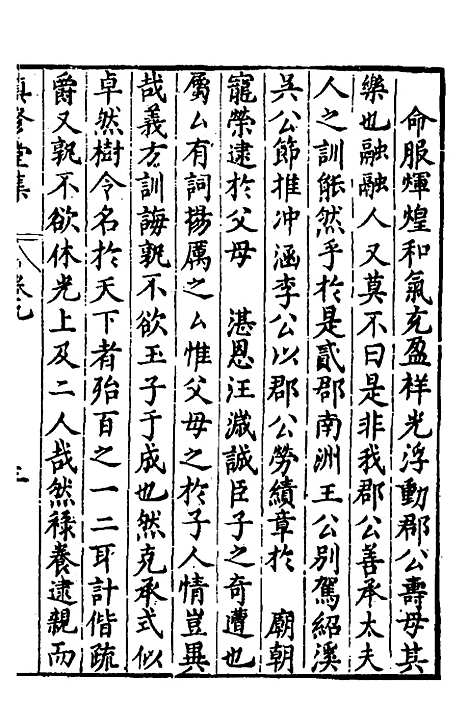 命服煇煌和氣充盈祥光浮動郡公壽母其
樂也融融人又莫不曰是非我郡公善承太夫
人之訓能然乎於是貳郡南洲王公別駕紹溪
吳公節推冲涵李公以郡公勞績章於　廟朝
寵榮逮於父母　湛恩汪濊誠臣子之奇遭也
屬厶有詞揚厲之厶惟父母之於子人情豈異
哉義方訓誨孰不欲玉子于成也然克承式似
卓然樹令名於天下者殆百之一二耳計偕疏
爵又孰不欲休光上及二人哉然祿養逮親而
慎修堂集　卷九　三